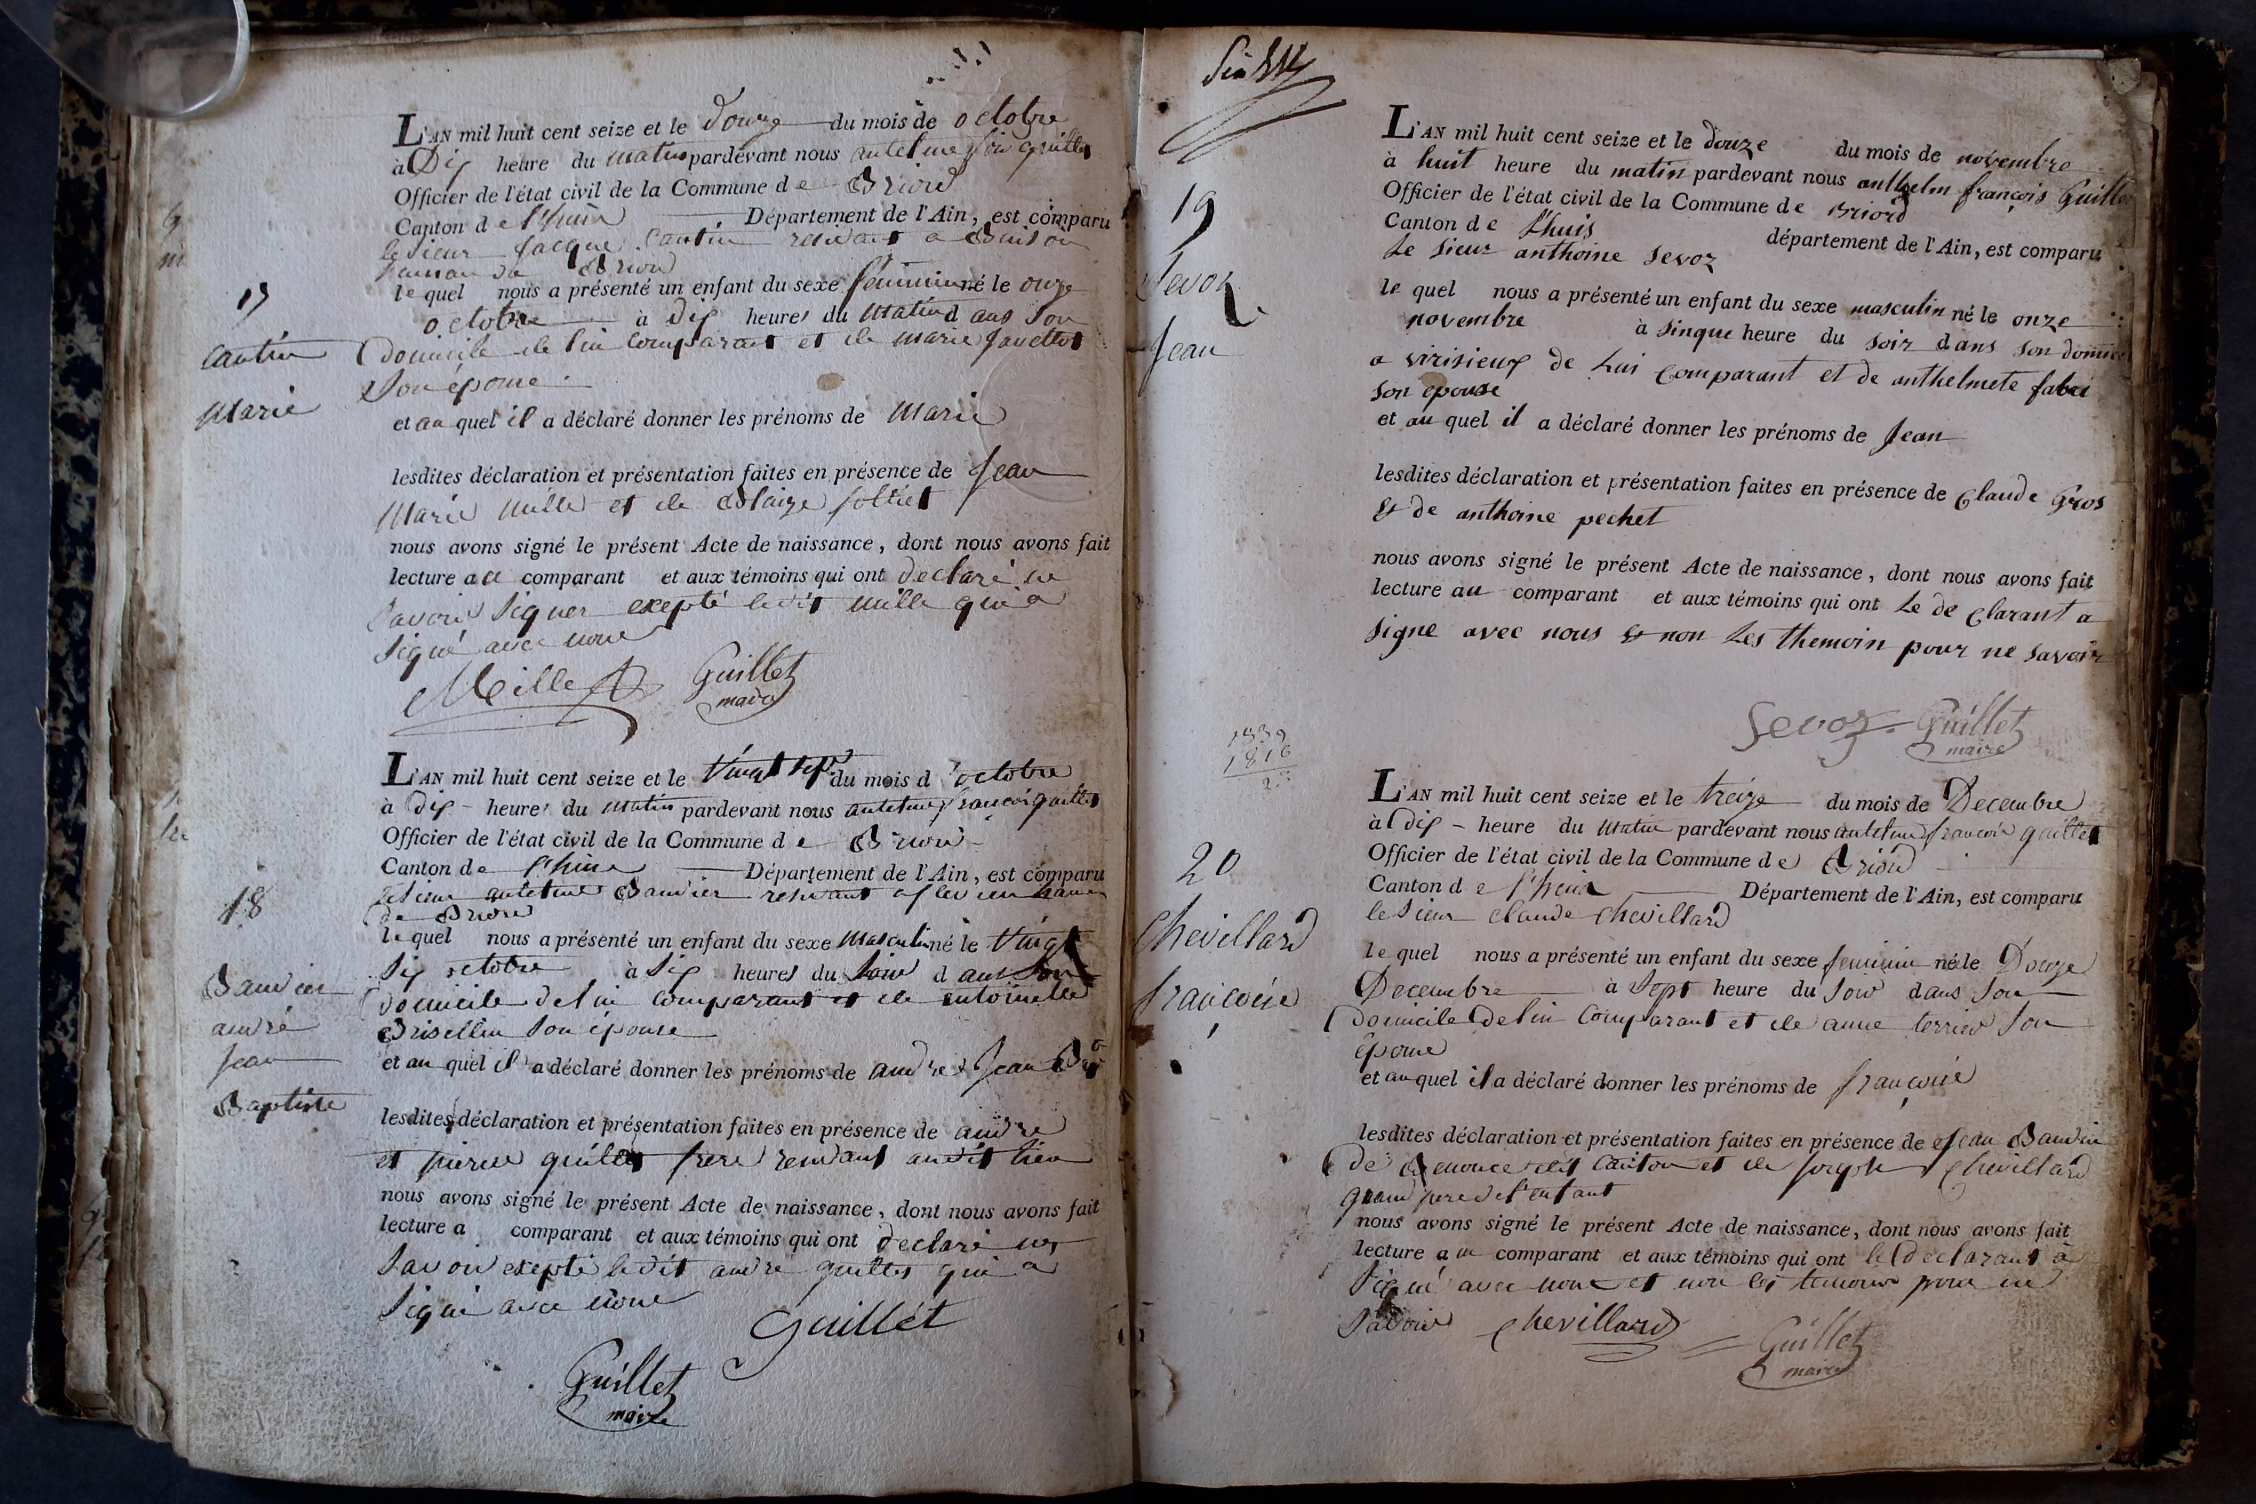 17
Cantin
Marie
L'AN mil huit cent seize et le Douze du mois de octobre
à Dix heure du matin pardevant nous antelme fois guillet
Officier de l'état civil de la Commune de Briord
Canton de l'huis Département de l'Ain, est comparu
le sieur Jacque Cantin residant a
hameau de Briord
le quel nous a présenté un enfant du sexe feminin né le onze
octobre à dix heures du matin dans son
Domicile de lui comparant et de marie
son épouse
et au quel il a déclaré donner les prénoms de Marie
lesdites déclaration et présentation faites en présence de Jean
Marie Mille et de Blaize
nous avons signé le présent Acte de naissance, dont nous avons fait
lecture au comparant et aux témoins qui ont declaré ne
savoir signer exepté ledit mille qui a
signé avec nous
Mille Guillet
maire
18
Baudier
andré
Jean
Baptiste
L'AN mil huit cent seize et le Vingt sept du mois d octobre
à dix heures du matin pardevant nous antelme françois guillet
Officier de l'état civil de la Commune de Briord
Canton de l'huis Département de l'Ain, est comparu
le sieur antelme Baudier residant a
de Briord
le quel nous a présenté un enfant du sexe masculin né le Vingt
six octobre à six heures du soir dans son
Domicile de lui comparant et de antoinette
Brisellin son épouse
et au quel il a déclaré donner les prénoms de andré Jean Bte
lesdites déclaration et présentation faites en présence de andré
et pierre guillet frere residant audit lieu
nous avons signé le présent Acte de naissance, dont nous avons fait
lecture a comparant et aux témoins qui ont declaré ne
savoir exepté ledit andré guillet qui a
signé avec nous
Guillét
Guillet
maire
19
Sevoz
Jean
L'AN mil huit cent seize et le douze du mois de novembre
à huit heure du matin pardevant nous anthelm françois Guillet
Officier de l'état civil de la Commune de Briord
Canton de l'huis département de l'Ain, est comparu
Le sieur anthoine sevoz
le quel nous a présenté un enfant du sexe masculin né le onze
novembre à sinque heure du soir dans son domicile
a virisieux de Lui comparant et de anthelmete fabri
son epouse
et au quel il a déclaré donner les prénoms de Jean
lesdites déclaration et présentation faites en présence de Claude Gros
& de anthoine pechet
nous avons signé le présent Acte de naissance, dont nous avons fait
lecture au comparant et aux témoins qui ont Le de clarant a
signe avec nous & non Les themoin pour ne savoir
Sevoz Guillet
maire
1839
1816
20
Chevillard
françoise
L'AN mil huit cent seize et le treize du mois de Decembre
à dix heure du matin pardevant nous antelme françois guillet
Officier de l'état civil de la Commune de Briord
Canton de l'huis Département de l'Ain, est comparu
le sieur claude chevillard
le quel nous a présenté un enfant du sexe feminin né le Douze
Decembre à sept heure du soir dans son
Domicile de lui comparant et de anne terrier son
épouse
et au quel il a déclaré donner les prénoms de françoise
lesdites déclaration et présentation faites en présence de Jean Baudin
de dit Canton et de joseph Chevillard
grand pere de l'enfant
nous avons signé le présent Acte de naissance, dont nous avons fait
lecture au comparant et aux témoins qui ont le declarant a
signé avec nous et non les temoins pour ne
savoir chevillard Guillet
maire